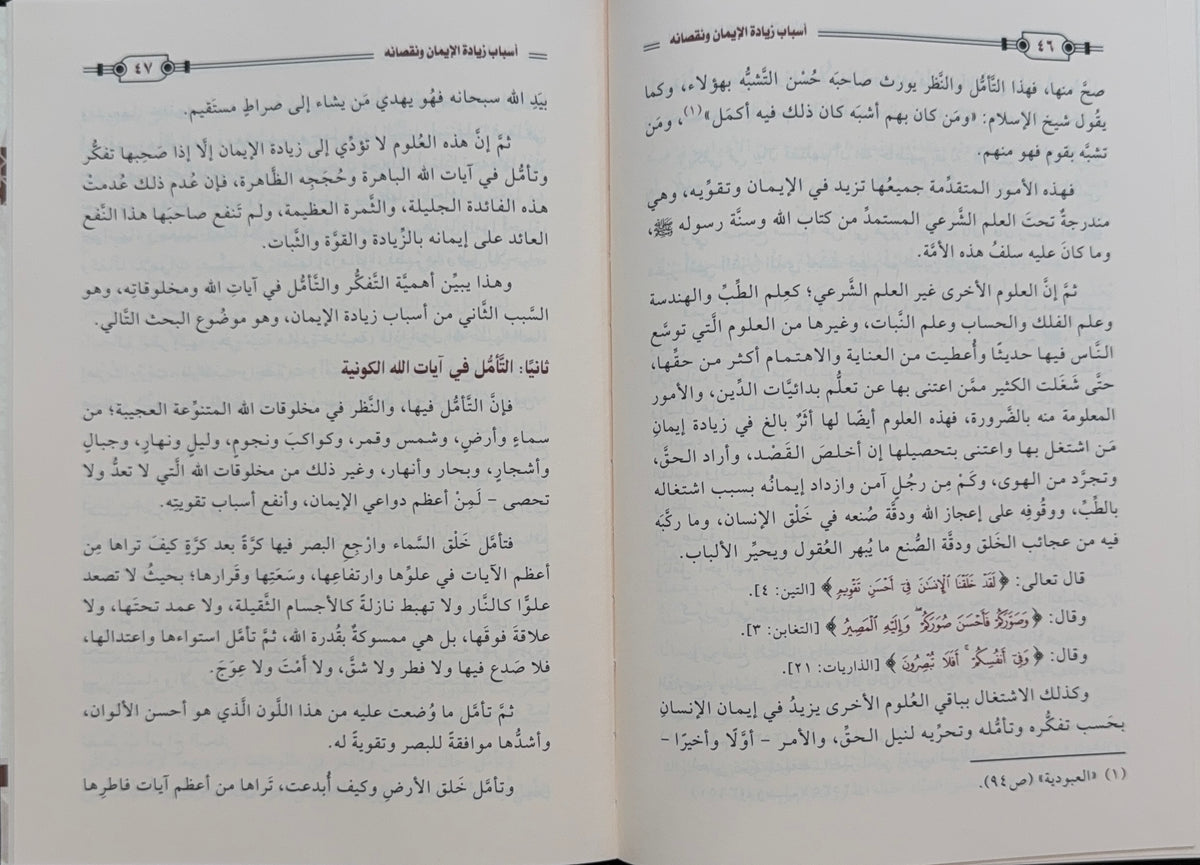 ٤٦
أسباب زيادة الإيمان ونقصانه
صحَّ منها، فهذا التَّأمُّل والنَّظر يورث صاحبَه حُسْن التَّشبُّه بهؤلاء، وكما
يقول شيخ الإسلام: «ومَن كان بهم أشبَه كان ذلك فيه أكمَل»(١)، ومَن
تشبَّه بقوم فهو منهم.
فهذه الأمور المتقدِّمة جميعُها تزيد في الإيمان وتقوِّيه، وهي
مندرجةٌ تحتَ العلم الشَّرعي المستمدِّ من كتاب الله وسنَّة رسوله ﷺ،
وما كانَ عليه سلفُ هذه الأمَّة.
ثمَّ إنَّ العلوم الأخرى غير العلم الشَّرعي؛ كعلم الطِّبِّ والهندسة
وعلم الفلك والحساب وعلم النَّبات، وغيرها من العلوم الَّتي توسَّع
النَّاس فيها حديثًا وأُعطيت من العناية والاهتمام أكثر من حقِّها،
حتَّى شَغَلت الكثير ممَّن اعتنى بها عن تعلُّم بدائيَّات الدِّين، والأمور
المعلومة منه بالضَّرورة، فهذه العلوم أيضًا لها أثرٌ بالغ في زيادة إيمانِ
مَن اشتغل بها واعتنى بتحصيلها إن أخلصَ القَصْد، وأراد الحقَّ،
وتجرَّد من الهوى، وكَمْ مِن رجُلٍ آمن وازداد إيمانُه بسبب اشتغاله
بالطِّبِّ، ووقُوفِه على إعجاز الله ودقَّة صُنعه في خَلْق الإنسان، وما ركَّبَه
فيه من عجائب الخَلق ودقَّة الصُّنع ما يُبهر العُقول ويحيِّر الألباب.
قال تعالى: ﴿لَقَدْ خَلَقْنَا الْإِنسَٰنَ فِي أَحْسَنِ تَقْوِيمٍ﴾ [التين: ٤].
وقال: ﴿وَصَوَّرَكُمْ فَأَحْسَنَ صُوَرَكُمْ وَإِلَيْهِ الْمَصِيرُ﴾ [التغابن: ٣].
وقال: ﴿وَفِي أَنفُسِكُمْ أَفَلَا تُبْصِرُونَ﴾ [الذاريات: ٢١].
وكذلك الاشتغال بباقي العُلوم الأخرى يزيدُ في إيمان الإنسانِ
بحَسب تفكُّره وتأمُّله وتحرِّيه لنيل الحقِّ، والأمر – أوَّلًا وأخيرًا –
(١) «العبودية» (ص٩٤).
أسباب زيادة الإيمان ونقصانه
٤٧
بيَدِ الله سبحانه فهُو يهدي مَن يشاء إلى صراطٍ مستَقيم.
ثمَّ إنَّ هذه العُلوم لا تؤدِّي إلى زيادة الإيمان إلَّا إذا صَحِبها تفكُّر
وتأمُّل في آيات الله الباهرة وحُجَجِه الظَّاهرة، فإن عُدم ذلك عُدمتْ
هذه الفائدة الجليلة، والثَّمرة العظيمة، ولم تَنفع صاحبَها هذا النَّفع
العائد على إيمانه بالزِّيادة والقوَّة والثَّبات.
وهذا يبيِّن أهميَّة التَّفكُّر والتَّأمُّل في آياتِ الله ومخلوقاتِه، وهو
السَّبب الثَّاني من أسباب زيادة الإيمان، وهو موضُوع البحث التَّالي.
ثانيًا: التَّأمُّل في آيات الله الكونية
فإنَّ التَّأمُّل فيها، والنَّظر في مخلوقات الله المتنوِّعة العجيبة؛ من
سماءٍ وأرضٍ، وشمس وقمر، وكواكبَ ونجومٍ، وليلٍ ونهارٍ، وجبالٍ
وأشجارٍ، وبحار وأنهار، وغير ذلك من مخلوقات الله الَّتي لا تعدُّ ولا
تحصى – لَمِنْ أعظم دواعي الإيمان، وأنفع أسباب تقويتِه.
فتأمَّل خَلْق السَّماء وارْجِعِ البصر فيها كرَّةً بعد كرَّةٍ كيفَ تراها مِن
أعظم الآيات في علوِّها وارتفاعِها، وسَعَتِها وقَرارها؛ بحيثُ لا تصعد
علوًّا كالنَّار ولا تهبط نازلةً كالأجسام الثَّقيلة، ولا عمد تحتَها، ولا
علاقةَ فوقَها، بل هي ممسوكةٌ بقُدرة الله، ثمَّ تأمَّل استواءها واعتدالها،
فلا صَدع فيها ولا فطر ولا شقَّ، ولا أَمْتَ ولا عِوَجَ.
ثمَّ تأمَّل ما وُضعت عليه من هذا اللَّون الَّذي هو أحسن الألوان،
وأشدُّها موافقةً للبصر وتقويةً له.
وتأمَّل خَلق الأرضِ وكيف أُبدعت، تَراها من أعظم آيات فاطرِها